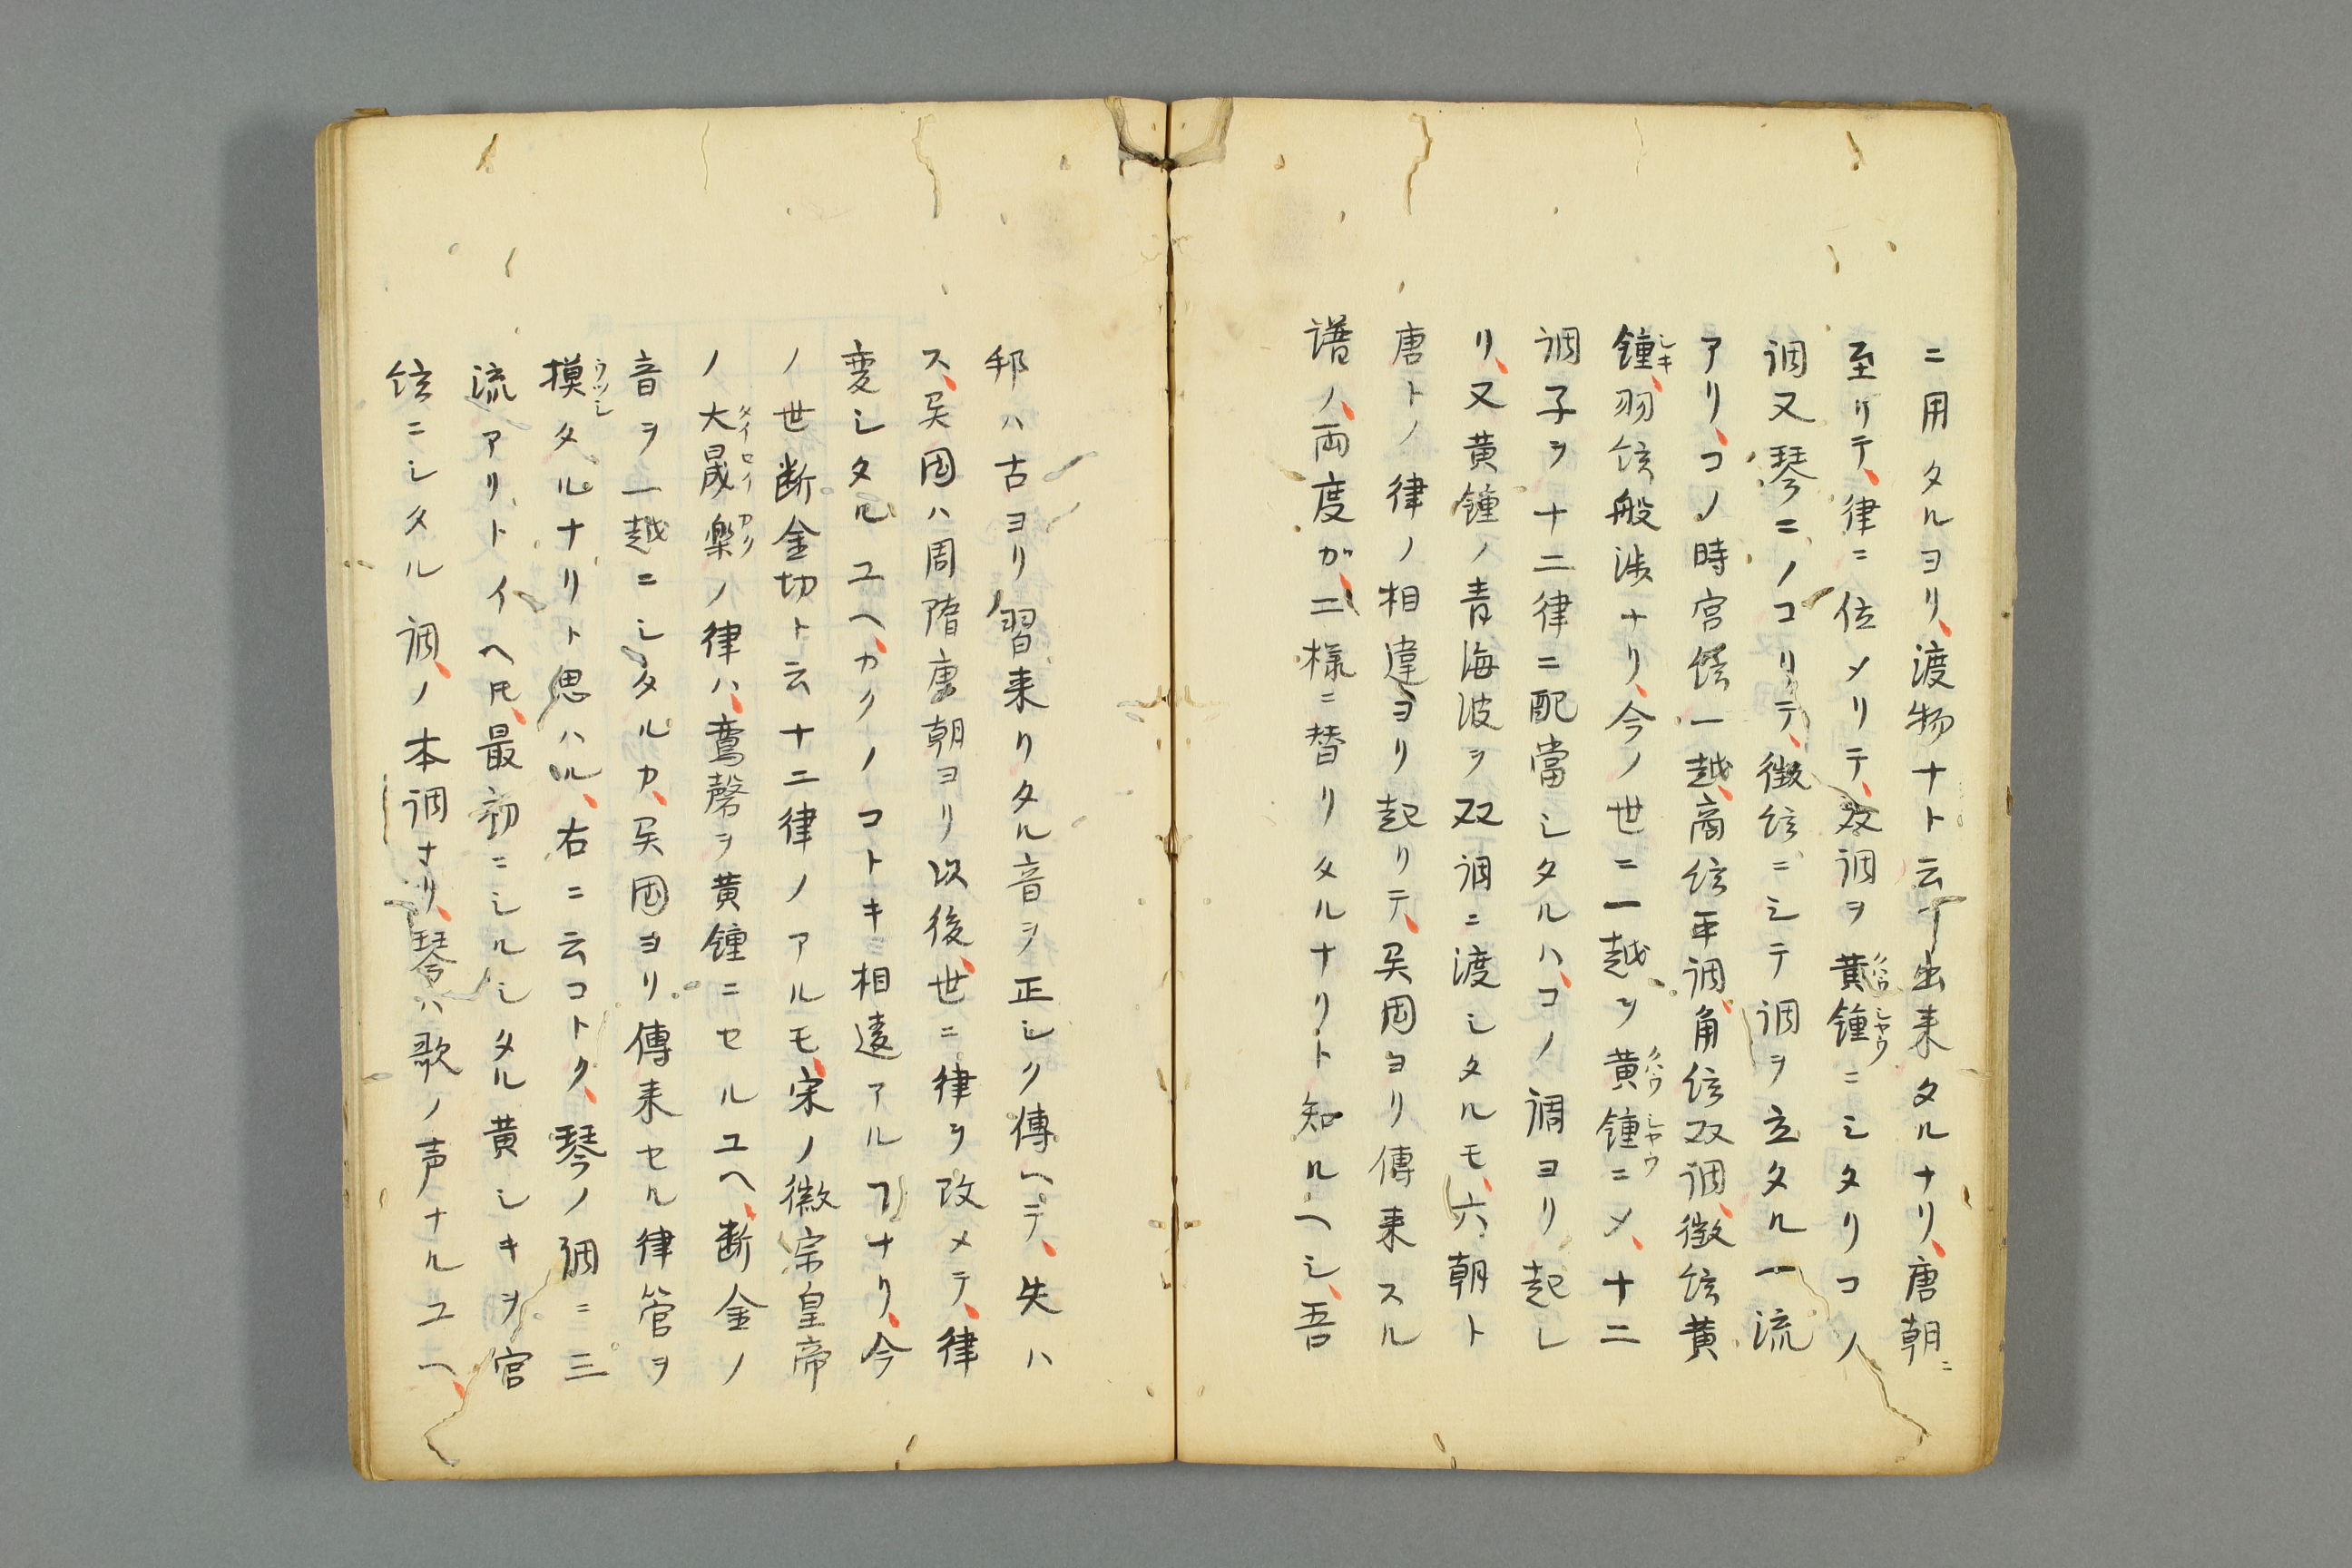 ニ用タルヨリ、渡物ナト云ヿ出来タルナリ、唐朝ニ
至リテ、律ニ位メリテ、双調ヲ黄鐘ニシタリコノ
調又琴ニノコリテ、徴絃ニシテ調ヲ立タル一流
アリ、コノ時宮絃一越、商絃平調、角絃双調、徴絃黄
鐘、羽絃般渉ナリ、今ノ世ニ一越ヲ黄鐘ニメ、十二
調子ヲ十二律ニ配當シタルハ、コノ調ヨリ起レ
リ、又黄鐘ノ青海波ヲ双調ニ渡シタルモ、六朝ト
唐トノ律ノ相違ヨリ起リテ、呉国ヨリ傳来スル
譜ノ、両度ガ、二様ニ替リタルナリト知ルヘシ、吾
邦ハ古ヨリ習来リタル音ヲ正シク傳ヘテ、失ハ
ス、呉国ハ周隋唐朝ヨリ以後、世ニ律ヲ改メテ、律
変シタルユヘ、カクノコトキ相違アルヿナリ、今
ノ世断金切ト云十二律ノアルモ、宋ノ徽宗皇帝
ノ大晟樂ノ律ハ、鸞磬ヲ黄鐘ニセルユヘ、断金ノ
音ヲ一越ニシタルカ、呉国ヨリ傳来セル律管ヲ
摸タルナリト思ハル、右ニ云コトク、琴ノ調ニ三
流アリトイヘㇳモ、最初ニシルシタル黄シキヲ宮
絃ニシタル調、ノ本調ナリ、琴ハ歌ノ声ナルユヘ、